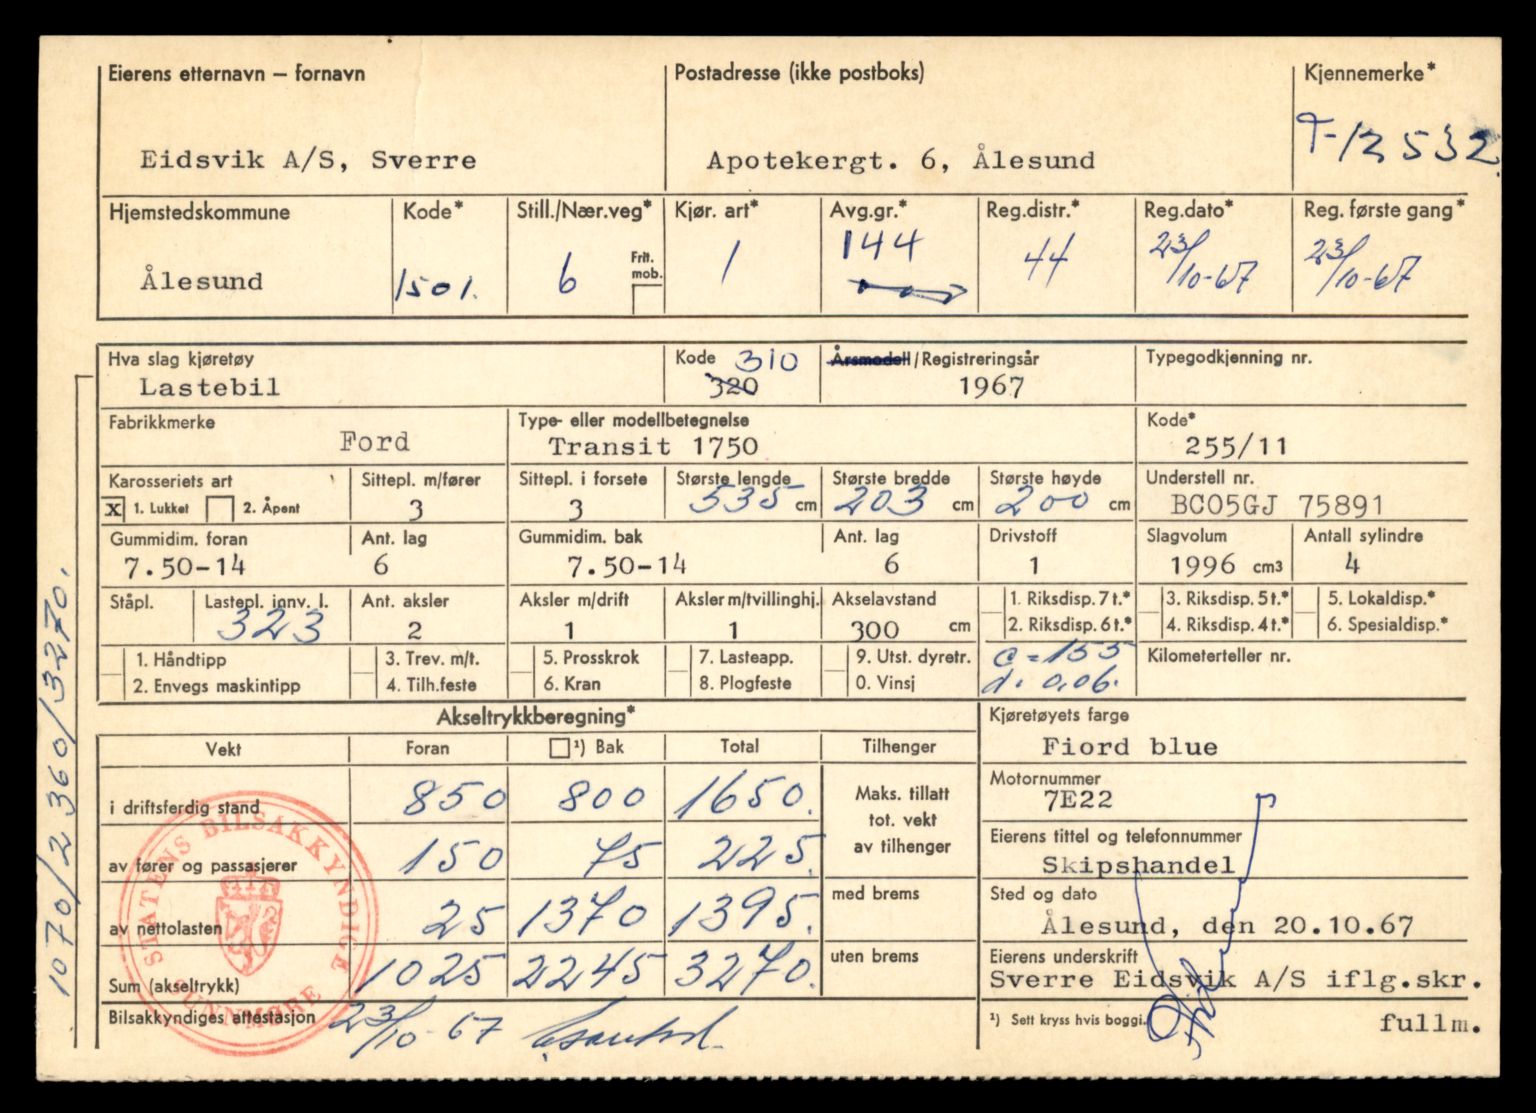 Eierens etternavn – fornavn Postadresse (ikke postboks) Kjennemerke*
Eidsvik A/S, Sverre Apotekergt. 6, Ålesund T-12532
Hjemstedskommune Kode* Still./Nær.veg* Kjør. art* Avg.gr.* Reg.distr.* Reg.dato* Reg. første gang*
Ålesund 1501. 6 Frit. mob. 1 144 44 23/10-67 23/10-67
Hva slag kjøretøy Kode 310 Årsmodell/Registreringsår Typegodkjenning nr.
Lastebil 320 1967
Fabrikkmerke Type- eller modellbetegnelse Kode*
Ford Transit 1750 255/11
Karosseriets art Sittepl. m/fører Sittepl. i forsete Største lengde Største bredde Største høyde Understell nr.
X 1. Lukket 2. Åpent 3 3 535 cm 203 cm 200 cm BC05GJ 75891
Gummidim. foran Ant. lag Gummidim. bak Ant. lag Drivstoff Slagvolum Antall sylindre
7.50-14 6 7.50-14 6 1 1996 cm3 4
Ståpl. Lastepl. innv. l. Ant. aksler Aksler m/drift Aksler m/tvillinghj. Akselavstand 1. Riksdisp. 7 t.* 3. Riksdisp. 5 t.* 5. Lokaldisp.*
323 2 1 1 300 cm 2. Riksdisp. 6 t.* 4. Riksdisp. 4 t.* 6. Spesialdisp.*
1. Håndtipp 3. Trev. m/t. 5. Prosskrok 7. Lasteapp. 9. Utst. dyretr. c = 155 Kilometerteller nr.
2. Envegs maskintipp 4. Tilh.feste 6. Kran 8. Plogfeste 0. Vinsj d. 0,06.
Akseltrykkberegning* Kjøretøyets farge
Vekt Foran ¹) Bak Total Tilhenger Fiord blue
i driftsferdig stand 850 800 1650. Maks. tillatt tot. vekt av tilhenger Motornummer
7E22
av fører og passasjerer 150 75 225. Eierens tittel og telefonnummer
Skipshandel
av nettolasten 25 1370 1395. med brems Sted og dato
Ålesund, den 20.10.67
Sum (akseltrykk) 1025 2245 3270. uten brems Eierens underskrift
Sverre Eidsvik A/S iflg.skr.
Bilsakkyndiges attestasjon 23/10-67 ¹) Sett kryss hvis boggi. fullm.
STATENS BILSAKKYNDIGE
SUNNMØRE
1070/2360/3270.